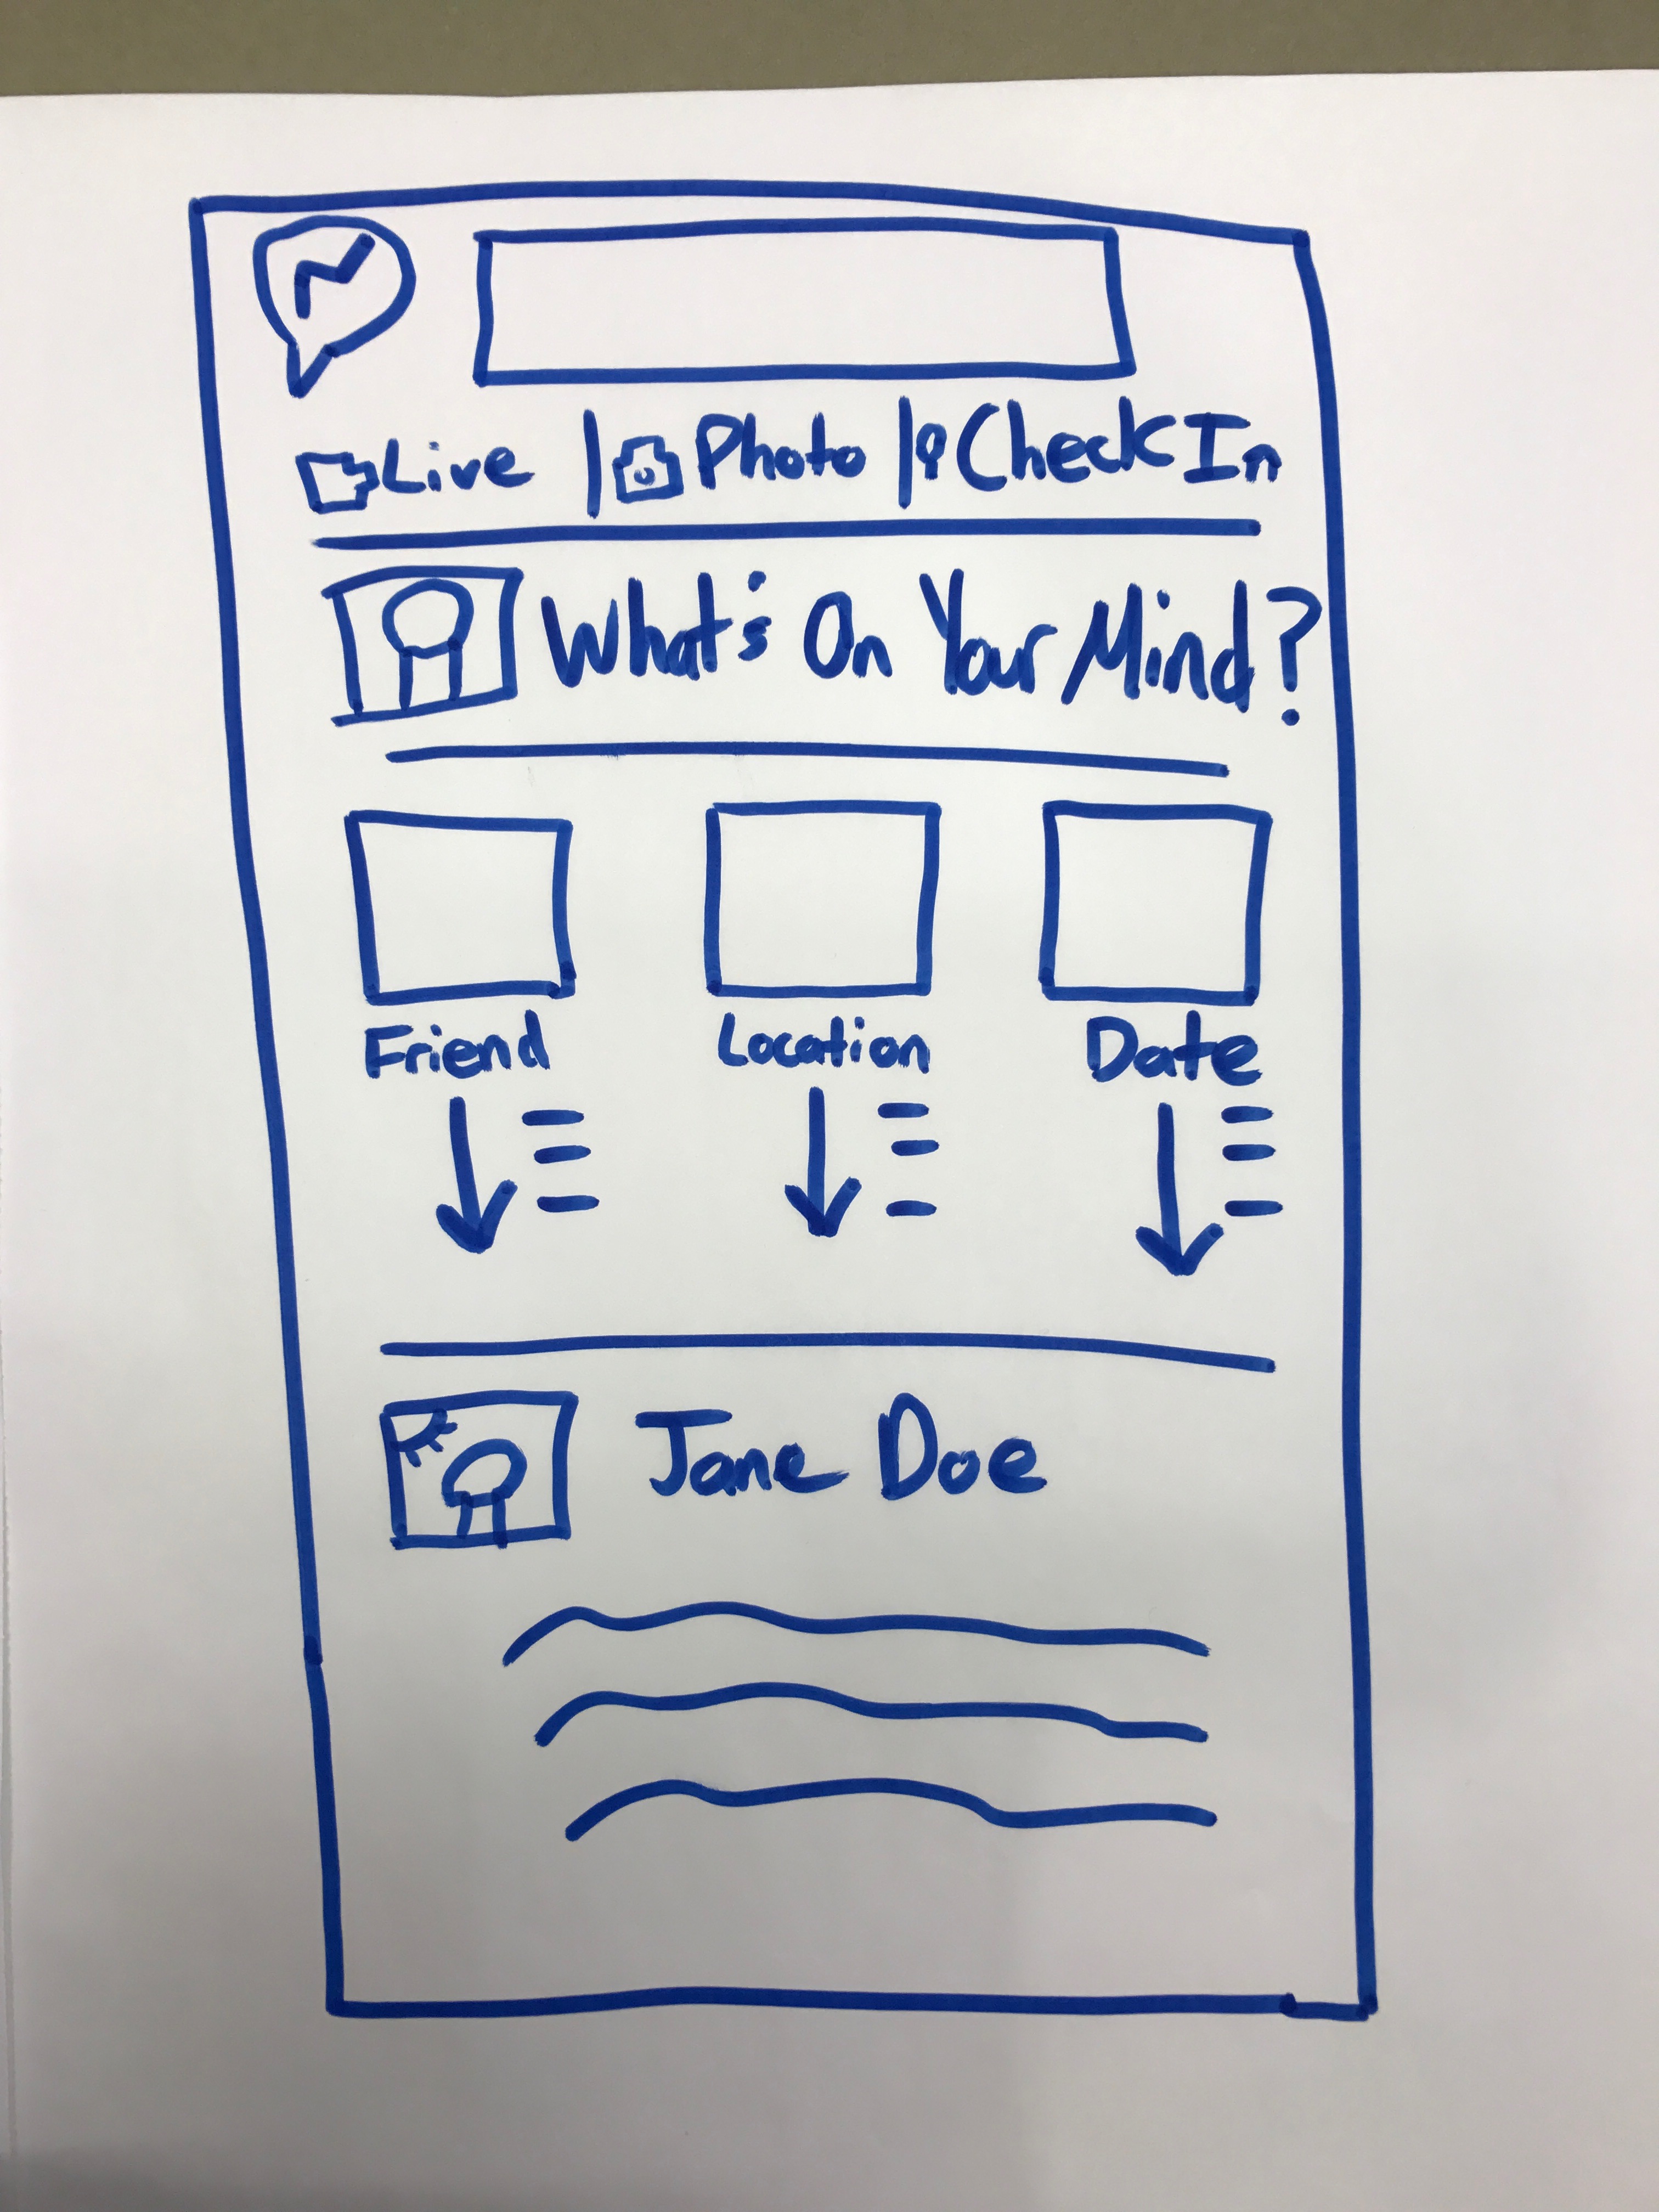 Live | Photo | Check In
What's On Your Mind?
Friend Location Date
Jane Doe